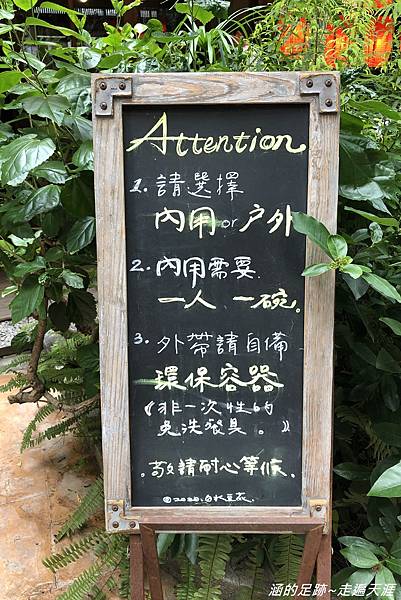 Attention
1. 請選擇
內用 or 戶外
2. 內用需要
一人 一碗。
3. 外帶請自備
環保容器
《非一次性的
免洗餐具。》
敬請耐心等候.
涵的足跡~走遍天涯